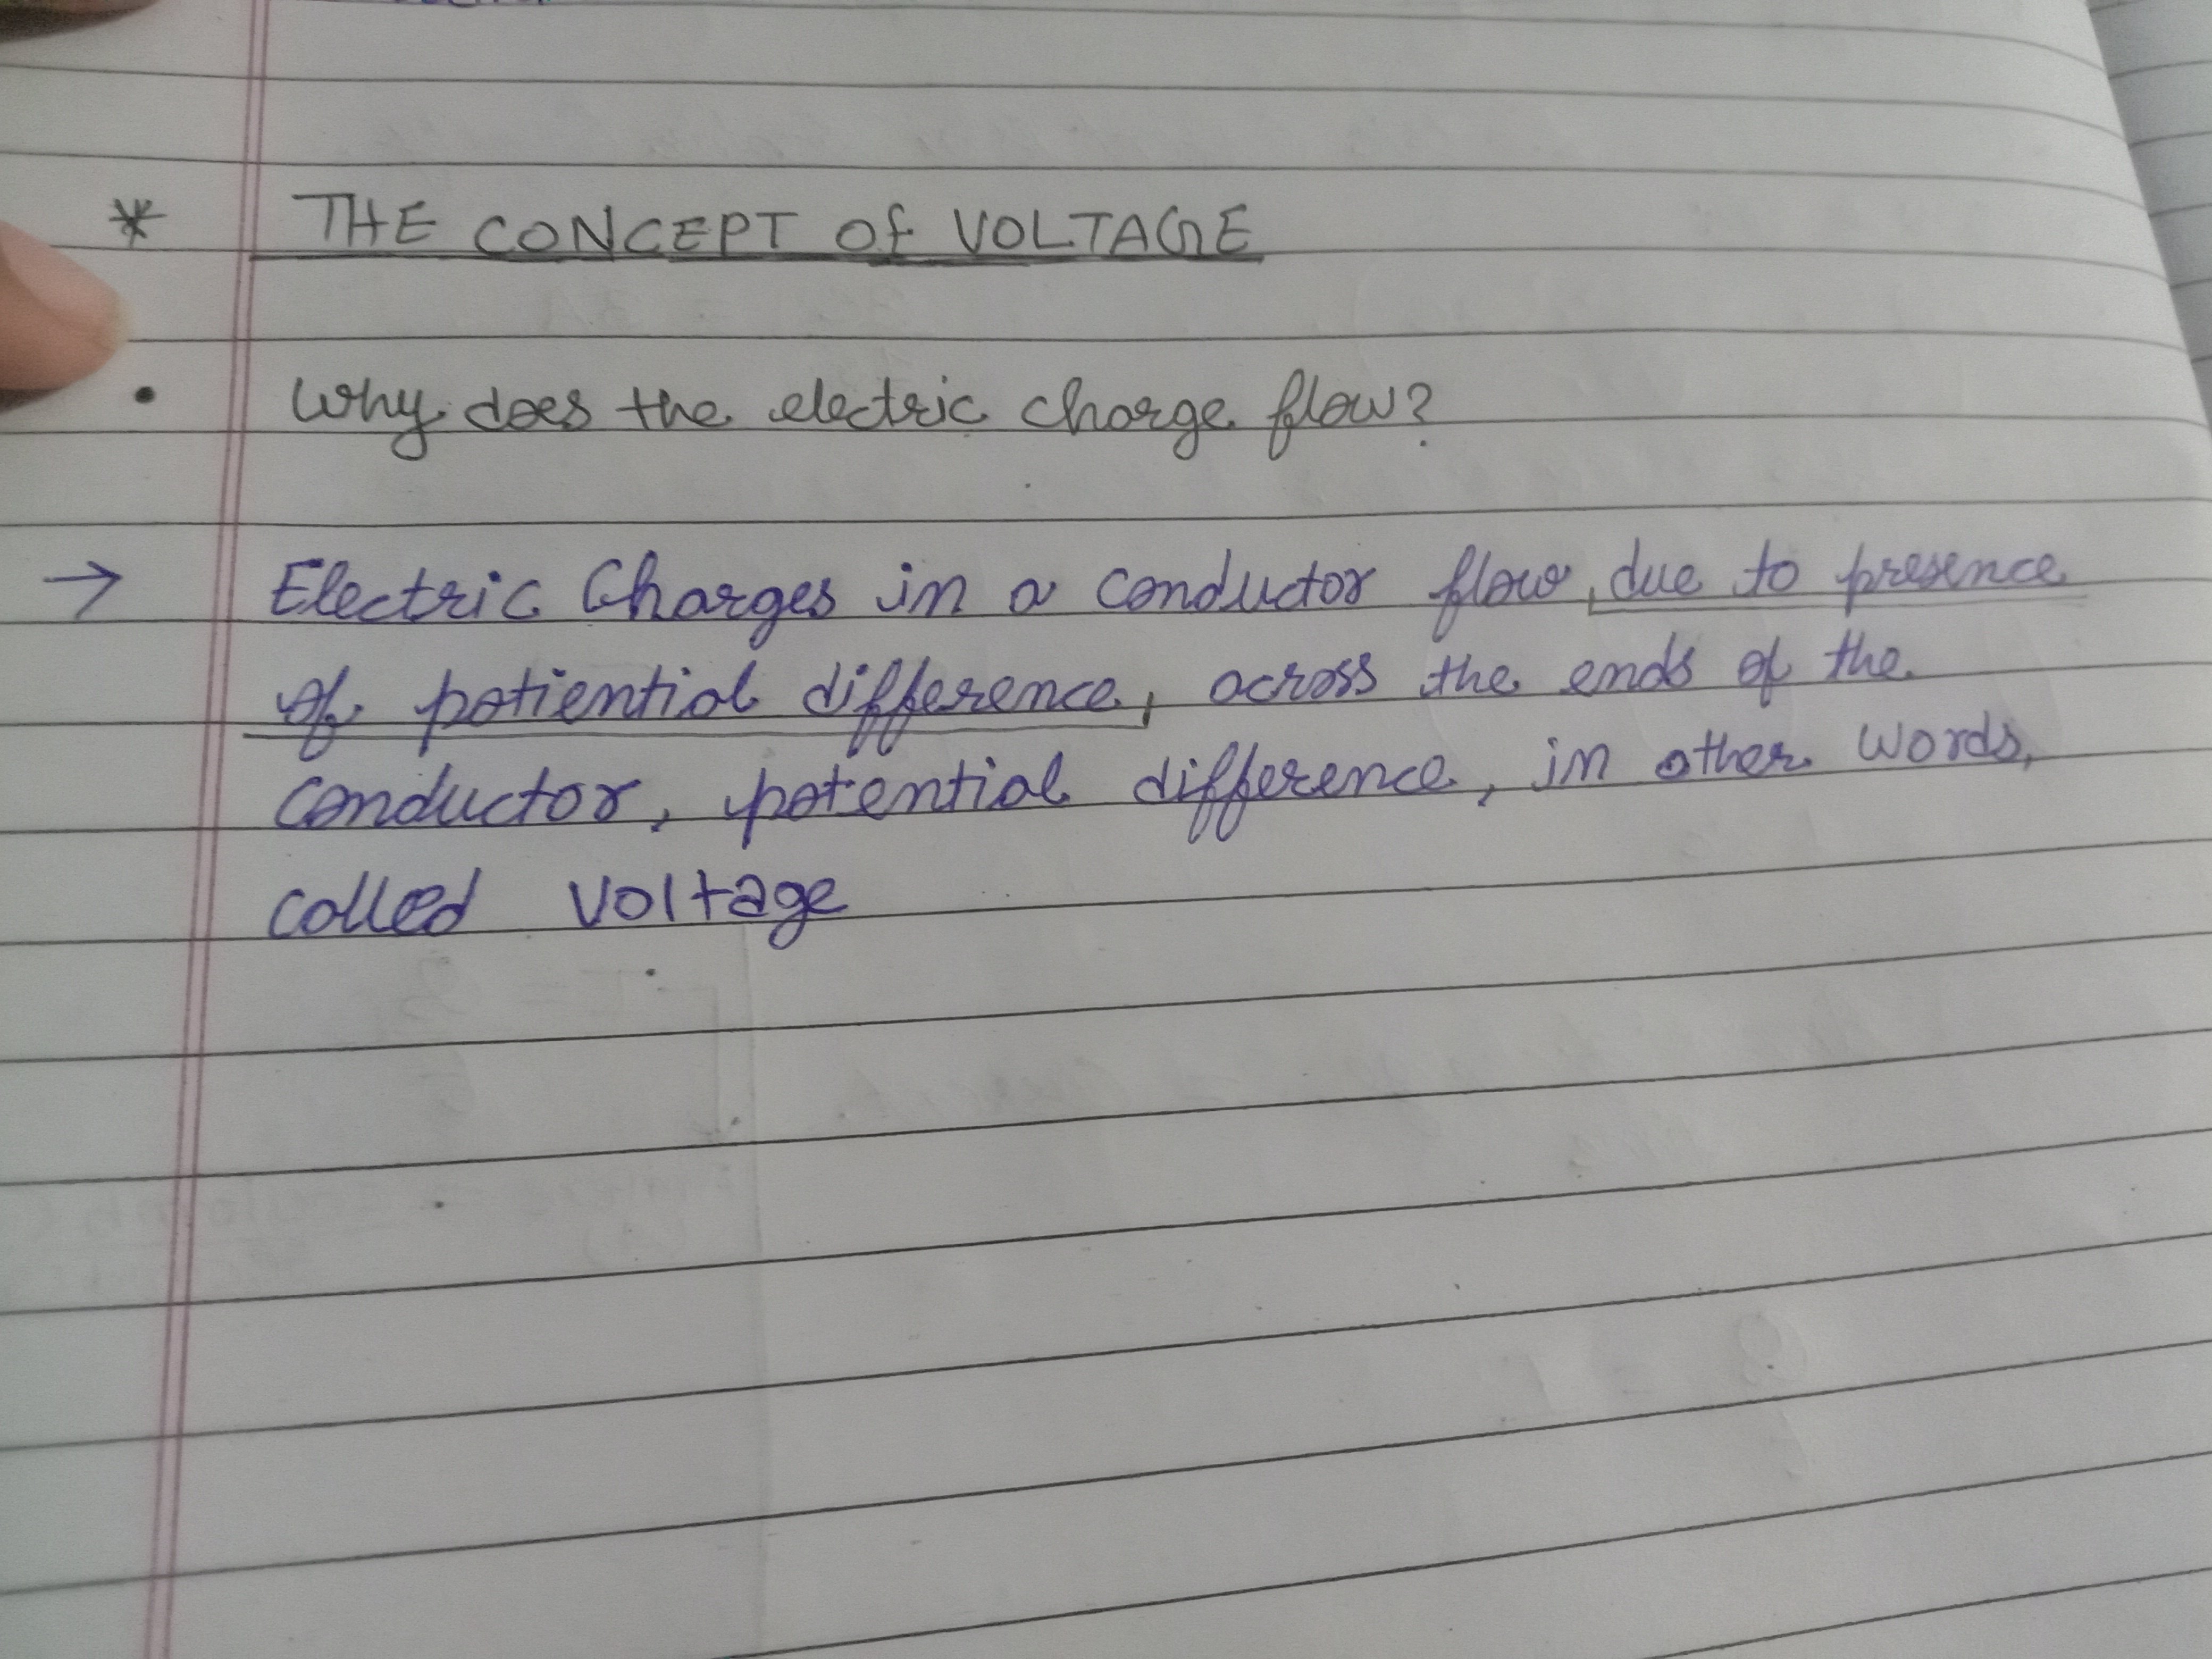 * THE CONCEPT Of VOLTAGE
• Why does the electric charge flow?
→ Electric Charges in a conductor flow, due to presence
of potiential difference, across the ends of the
conductor, potential difference, in other words,
called voltage